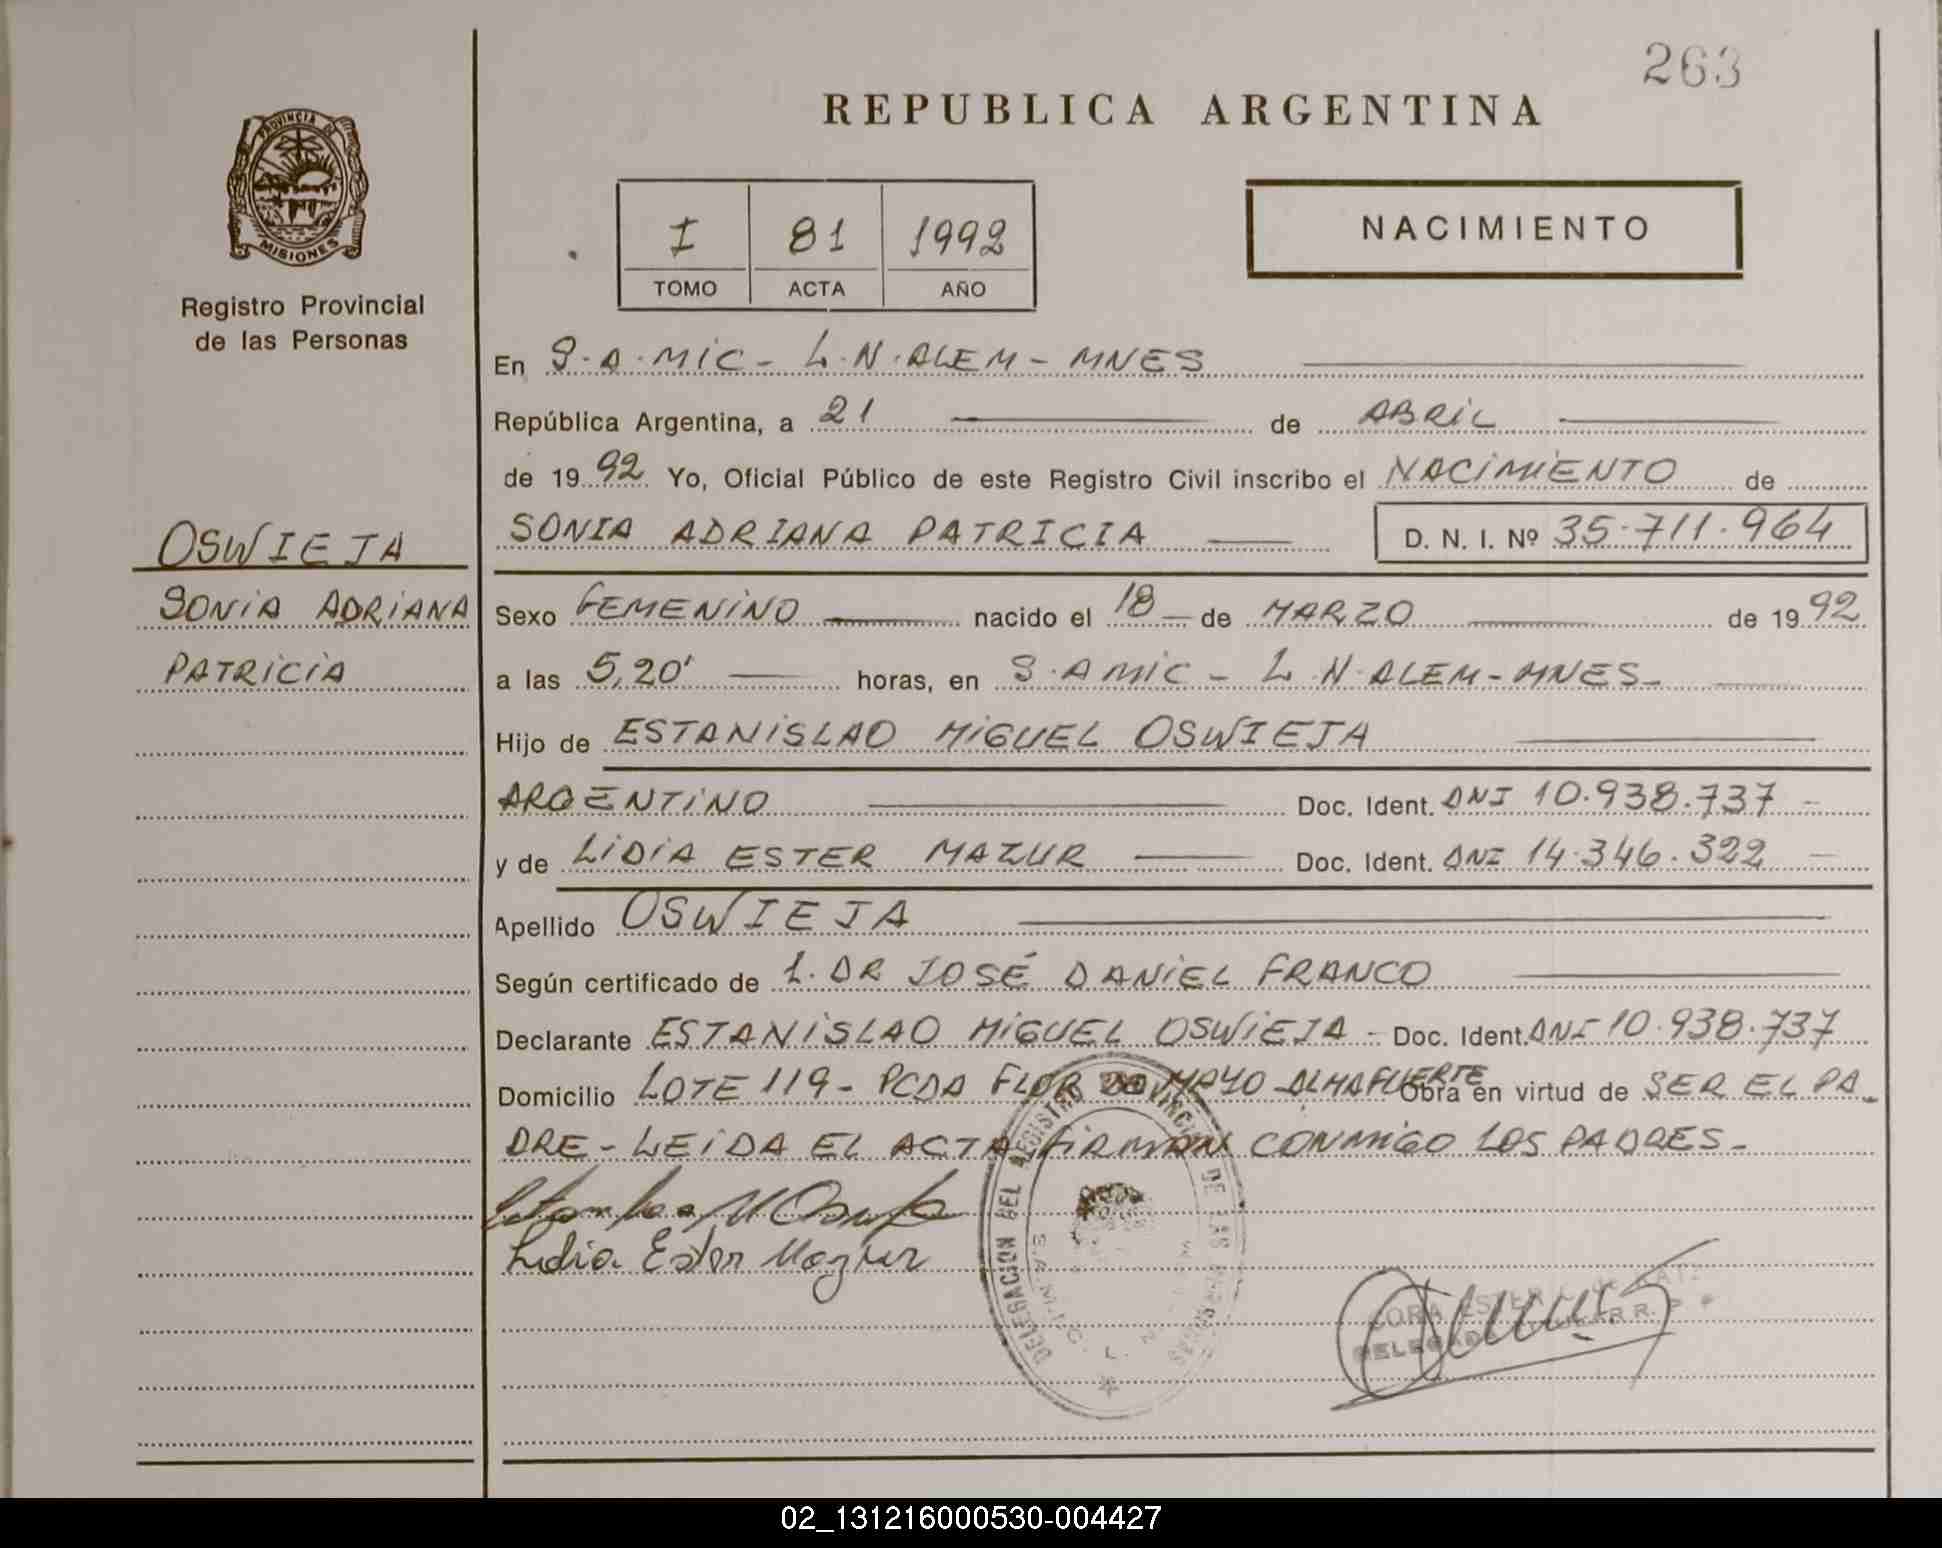 263
REPUBLICA ARGENTINA
PROVINCIA DE
MISIONES
Registro Provincial
de las Personas
I 81 1992
TOMO ACTA AÑO
NACIMIENTO
En S.A.MIC - L.N.ALEM - MNES
República Argentina, a 21 de ABRIL
de 1992 Yo, Oficial Público de este Registro Civil inscribo el NACIMIENTO de
SONIA ADRIANA PATRICIA D. N. I. Nº 35.711.964
OSWIEJA
SONIA ADRIANA
PATRICIA
Sexo FEMENINO nacido el 18 de MARZO de 1992
a las 5,20' horas, en S.A MIC - L.N.ALEM - MNES
Hijo de ESTANISLAO MIGUEL OSWIEJA
ARGENTINO Doc. Ident. DNI 10.938.737
y de LIDIA ESTER MAZUR Doc. Ident. DNI 14.346.322
Apellido OSWIEJA
Según certificado de 1. DR JOSÉ DANIEL FRANCO
Declarante ESTANISLAO MIGUEL OSWIEJA - Doc. Ident. DNI 10.938.737
Domicilio LOTE 119 - PCDA FLOR DE MAYO - ALMAFUERTE Obra en virtud de SER EL PA
DRE - LEIDA EL ACTA FIRMAN CONMIGO LOS PADRES -
Lidia Ester Mazur
DELEGACION DEL REGISTRO PROVINCIAL DE LAS PERSONAS
S.A.M.I.C. L. N.
CORA ESTER C. de
DELEGADA
02_131216000530-004427